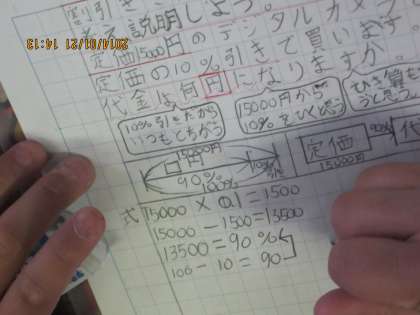 割引き
説明しよう。
定価15000円のデジタルカメラ
定価の10%引きで買います。
代金は何円になりますか。
10%引きだから
いつもとちがう
15000円から
10%をひくと思う
ひき算だ
うと思う。
15000円
□円
10%
90%
100%
定価
90%
15000円
式 15000 × 0.1 = 1500
15000 - 1500 = 13500
13500 = 90%
100 - 10 = 90
2014/01/21 14:13